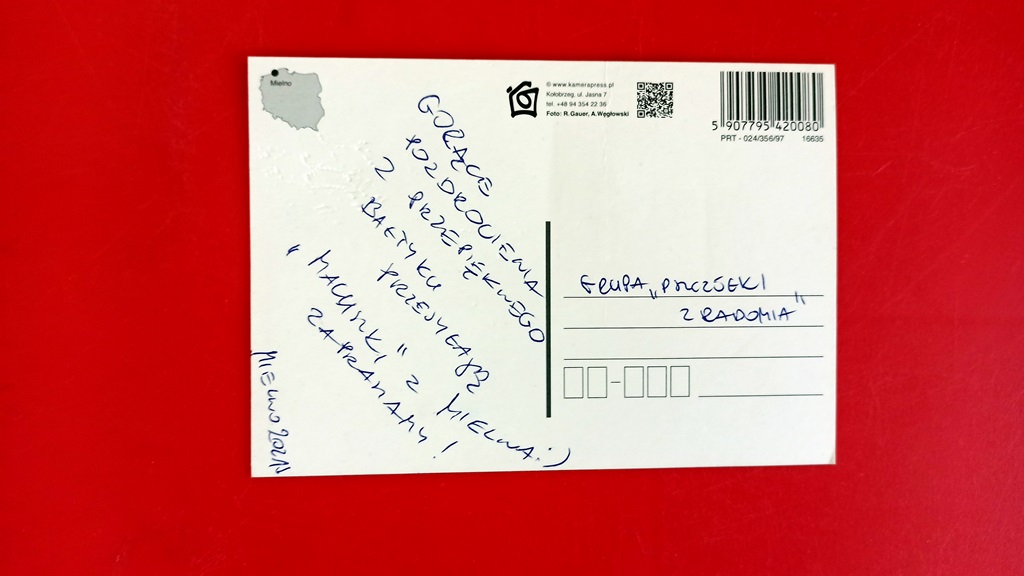 Mielno
© www.kamerapress.pl
Kołobrzeg, ul. Jasna 7
tel. +48 94 354 22 36
Foto: R.Gauer, A.Węgłowski
5 907795 420080
PRT - 024/356/97 16635
GORĄCE
POZDROWIENIA
Z PRZEPIĘKNEGO
BAŁTYKU
PRZESYŁAJĄ
„MALUSZKI" Z MIELNA :)
ZAPRASZAMY!
MIELNO 2021
GRUPA „PSZCZÓŁKI
Z RADOMIA"